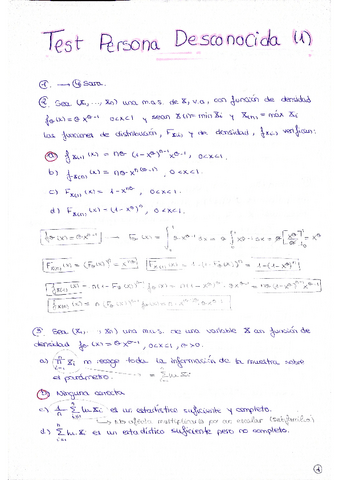 Test Persona Desconocida (1)
1. → 4 Sara.
2. Sea (X₁, ..., Xn) una m.a.s. de X, v.a., con función de densidad
fθ(x) = θx^(θ-1) 0<x<1 y sean X(1) = min Xi y X(n) = máx Xi
las funciones de distribución, FX(i) y de densidad, fX(i) verifican:
a) fX(1)(x) = nθ(1-x^θ)^(n-1) x^(θ-1), 0<x<1.
b) fX(n)(x) = nθx^(n(θ-1)), 0<x<1.
c) FX(n)(x) = 1-x^(nθ), 0<x<1
d) FX(1)(x) = (1-x^θ)^n, 0<x<1.
fθ(x) = θx^(θ-1) → Fθ(x) = ∫ θ·x^(θ-1) dx = θ ∫ x^(θ-1) dx = θ[x^θ/θ] = x^θ
FX(n)(x) = (Fθ(x))^n = x^(θn) FX(1)(x) = 1-(1-Fθ(x))^n = 1-(1-x^θ)^n
fX(1)(x) = n(1-Fθ(x))^(n-1) fθ(x) = n(1-x^θ)^(n-1) θx^(θ-1) = nθ(1-x^θ)^(n-1) x^(θ-1)
fX(n)(x) = n(Fθ(x))^(n-1) fθ(x)
3. Sea (X₁, ..., Xn) una m.a.s. de una variable X con función de
densidad fθ(x) = θx^(θ-1), 0<x<1, θ>0.
a) Xi recoge toda la información de la muestra sobre
el parámetro.
b) Ninguna correcta
c) 1/n Σ ln Xi es un estadístico suficiente y completo.
No afecta multiplicarlo por un escalar
d) Σ ln Xi es un estadístico suficiente pero no completo.
1